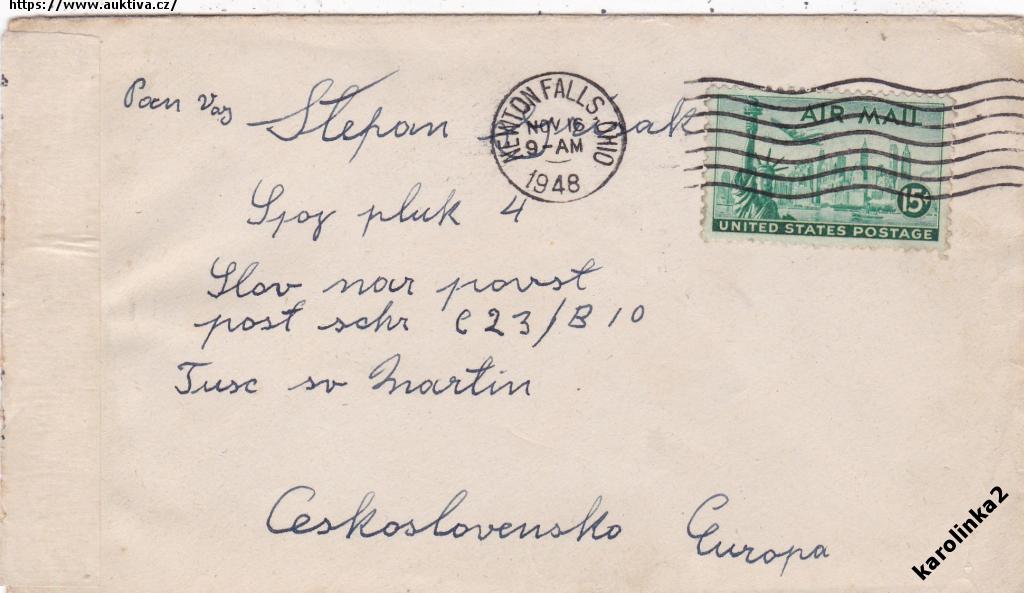 https://www.auktiva.cz/
Pan Voj Stepan
NEWTON FALLS, OHIO
NOV 16
9-AM
1948
AIR MAIL
15¢
UNITED STATES POSTAGE
Spoj pluk 4
Slov nar povst
post schr C 23/B 10
Turc sv Martin
Ceskoslovensko Europa
karolinka2